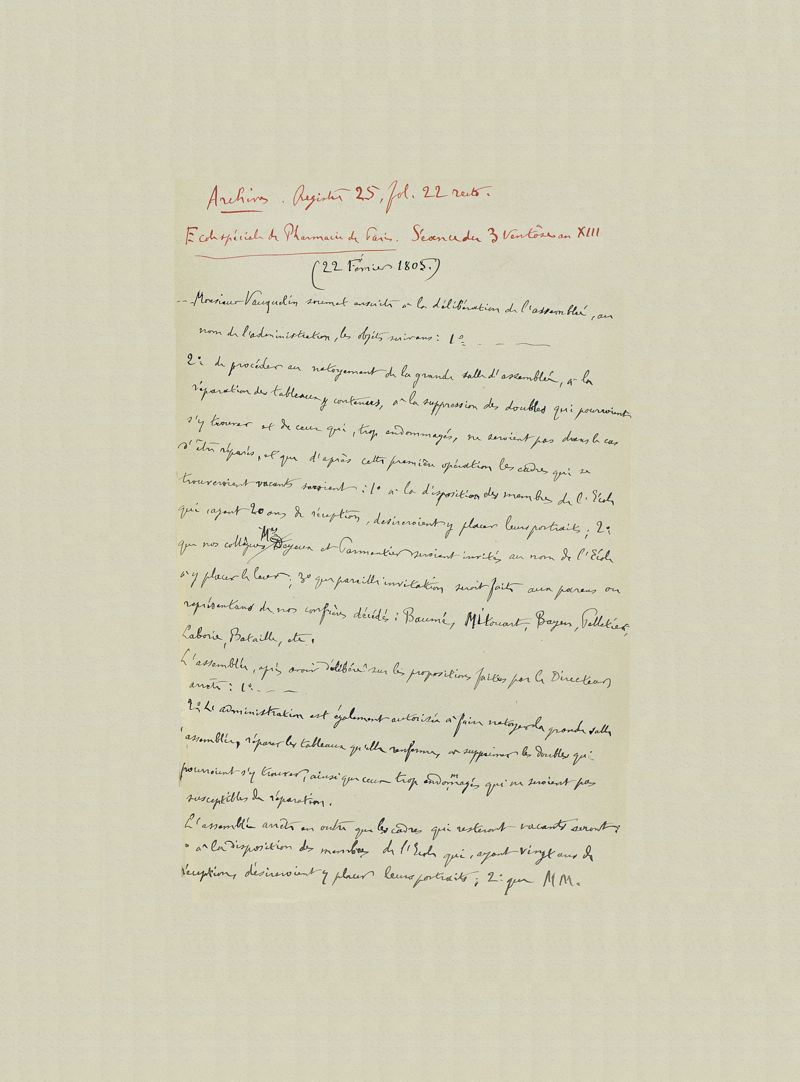 Archives. Registre 25, fol. 22 recto.
Ecole spéciale de Pharmacie de Paris. Séance du 3 Ventôse an XIII
(22 Février 1805.)
... Monsieur Vauquelin soumet ensuite à la délibération de l'assemblée, au
nom de l'administration, les objets suivans : 1º. — — —
2º de procéder au netoyement de la grande salle d'assemblée, à la
réparation des tableaux y contenus, à la suppression des doubles qui pourroient
s'y trouver et de ceux qui, trop endommagés, ne seroient pas dans le cas
d'être réparés, et que d'après cette première opération les cadres qui se
trouveroient vacants seroient : 1º à la disposition des membres de l'Ecole
qui, ayant 20 ans de réception, désireroient y placer leurs portraits ; 2º
que nos collègues MM Deyeux et Parmentier seroient invités au nom de l'Ecole
à y placer le leur ; 3º que pareille invitation seroit faite aux parens ou
représentans de nos confrères décédés : Baumé, Mitouart, Bayen, Pelletier,
Laborie, Bataille, etc.
L'assemblée, après avoir délibéré sur les propositions faites par le Directeur,
arrête : 1º — — —
2º L'administration est également autorisée à faire netoyer la grande salle
assemblée, réparer les tableaux qu'elle renferme, à supprimer les doubles qui
pourroient s'y trouver, ainsi que ceux trop endommagés qui ne seroient pas
susceptibles de réparation.
L'assemblée arrête en outre que les cadres qui resteront vacants seront :
º à la disposition des membres de l'Ecole qui, ayant vingt ans de
réception, désireroient y placer leurs portraits ; 2º que MM.